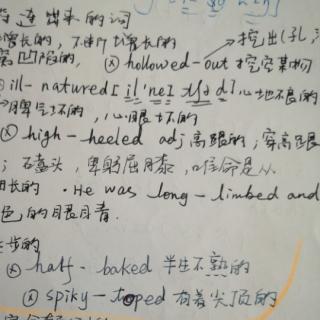 连出来的词
增长的，不断增长的
→挖出（孔
凹陷的，ⓧ hollowed-out 挖空某物
ⓧ ill-natured 心地不良的
→脾气坏的，心眼坏的
ⓧ high-heeled adj 高跟的；穿高跟
；磕头，卑躬屈膝，唯命是从
长的 · He was long-limbed and
色的眼睛.
步的
ⓧ half-baked 半生不熟的
ⓧ spiky-toped 有着尖顶的